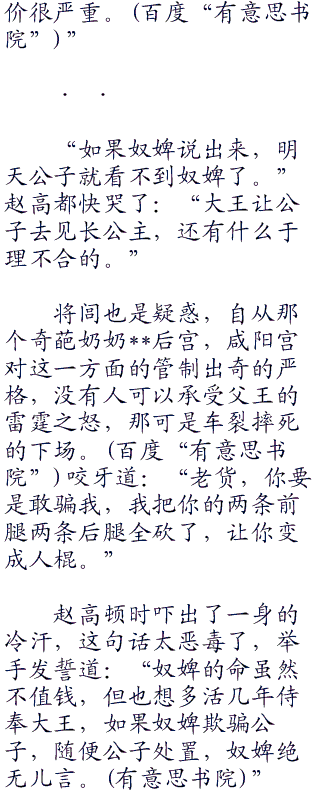 价很严重。(百度“有意思书
院”)”
· ·
“如果奴婢说出来，明
天公子就看不到奴婢了。”
赵高都快哭了：“大王让公
子去见长公主，还有什么于
理不合的。”
将闾也是疑惑，自从那
个奇葩奶奶**后宫，咸阳宫
对这一方面的管制出奇的严
格，没有人可以承受父王的
雷霆之怒，那可是车裂摔死
的下场。(百度“有意思书
院”)咬牙道：“老货，你要
是敢骗我，我把你的两条前
腿两条后腿全砍了，让你变
成人棍。”
赵高顿时吓出了一身的
冷汗，这句话太恶毒了，举
手发誓道：“奴婢的命虽然
不值钱，但也想多活几年侍
奉大王，如果奴婢欺骗公
子，随便公子处置，奴婢绝
无儿言。(有意思书院)”